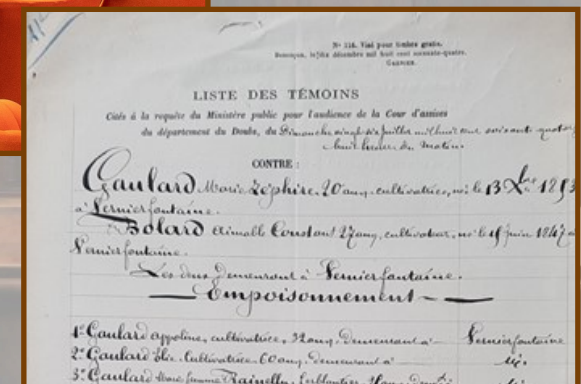 N° 116. Visé pour timbre gratis.
Besançon, le dix décembre mil huit cent soixante-quatre.
LISTE DES TÉMOINS
Cités à la requête du Ministère public pour l'audience de la Cour d'assises
du département du Doubs, du Dimanche vingt six juillet mil huit cent soixante quatorze
huit heures du matin.
CONTRE :
Gaulard Marie Zéphire, 20 ans, cultivatrice, née le 13 Xbre 1853
à Vernierfontaine.
2° Bolard Aimable Constant 27 ans, cultivateur, né le 15 juin 1847 à
Vernierfontaine.
Les deux demeurant à Vernierfontaine.
Empoisonnement
1° Gaulard Appoline, cultivatrice, 32 ans, demeurant à Vernierfontaine
2° Gaulard Élie, Cultivatrice, 60 ans, demeurant à id.
3° Gaulard Marie femme